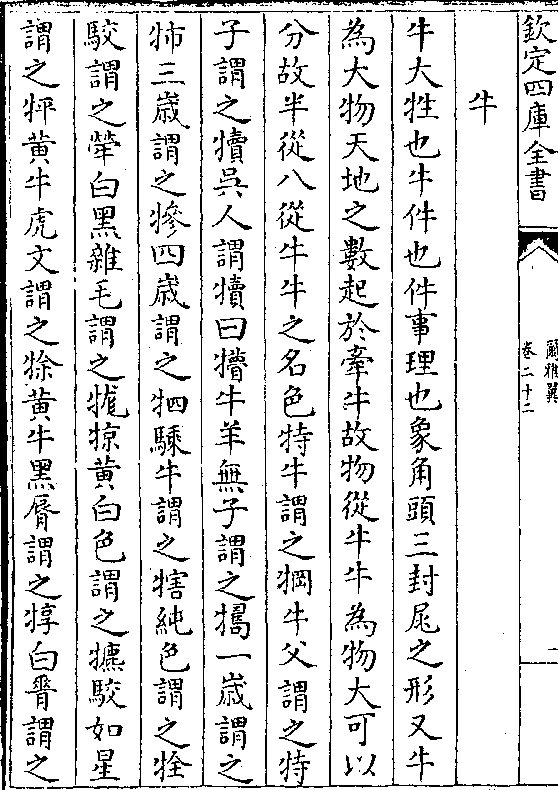 欽定四庫全書
爾雅翼
卷二十二
牛
牛大牲也牛件也件事理也象角頭三封尾之形又牛
為大物天地之數起於牽牛故物從牛牛為物大可以
分故半從八從牛牛之名色特牛謂之犅牛父謂之特
子謂之犢吳人謂犢曰㹙牛羊無子謂之𤚼一歲謂之
㸬三歲謂之犙四歲謂之牭騬牛謂之犗純色謂之牷
駁謂之犖白黑雜毛謂之牻㹁黃白色謂之犥駁如星
謂之㸹黃牛虎文謂之㻌黃牛黑脣謂之犉白脊謂之